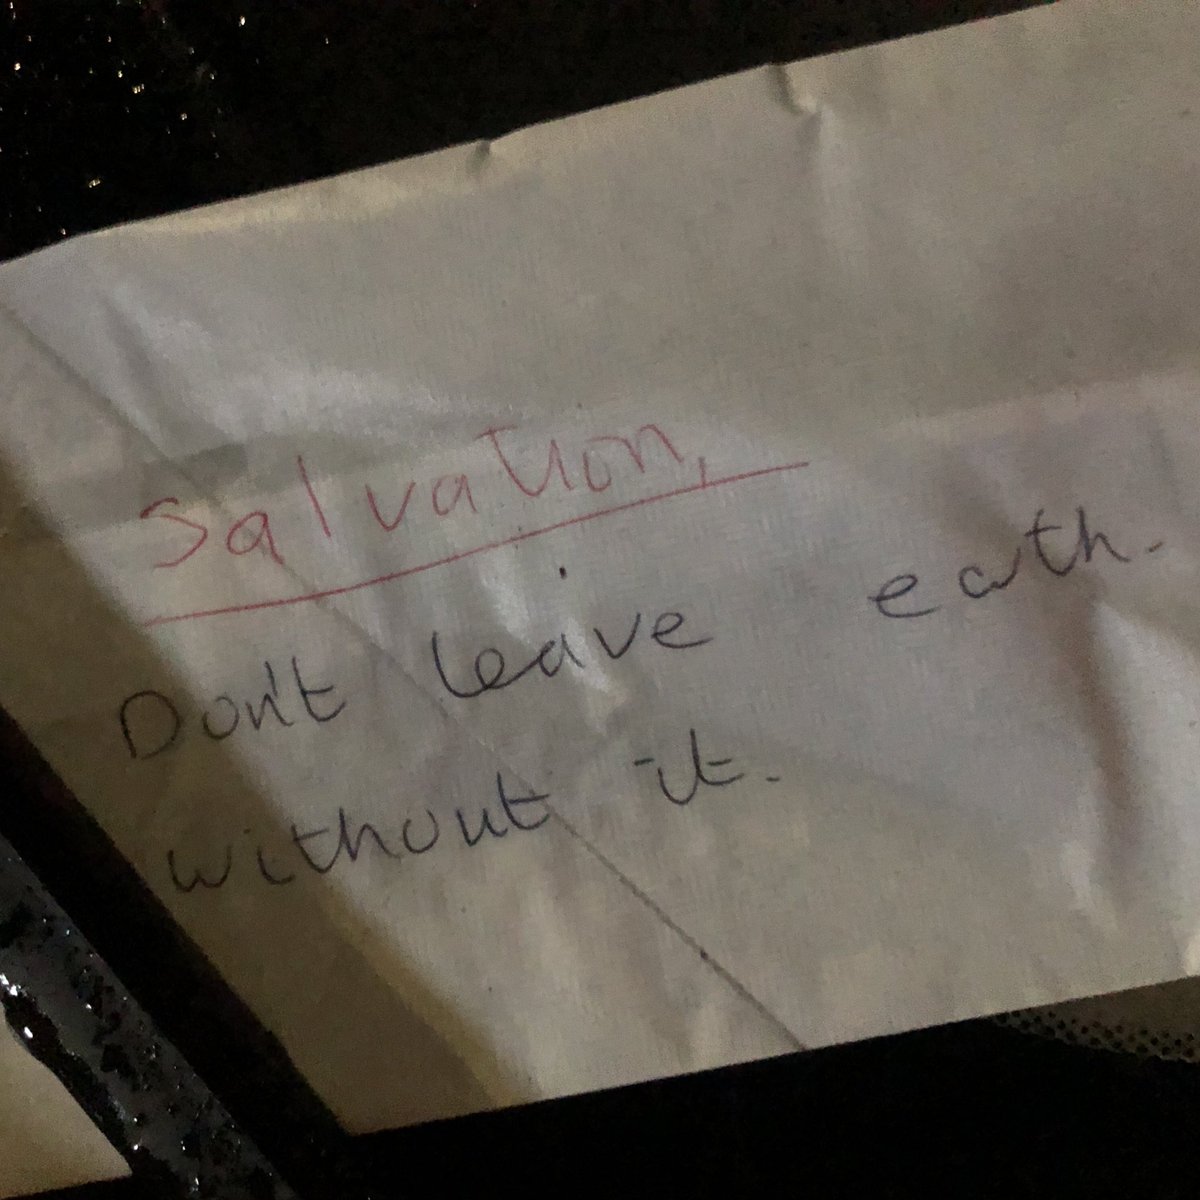 Salvation,
Don't leave earth.
without it.